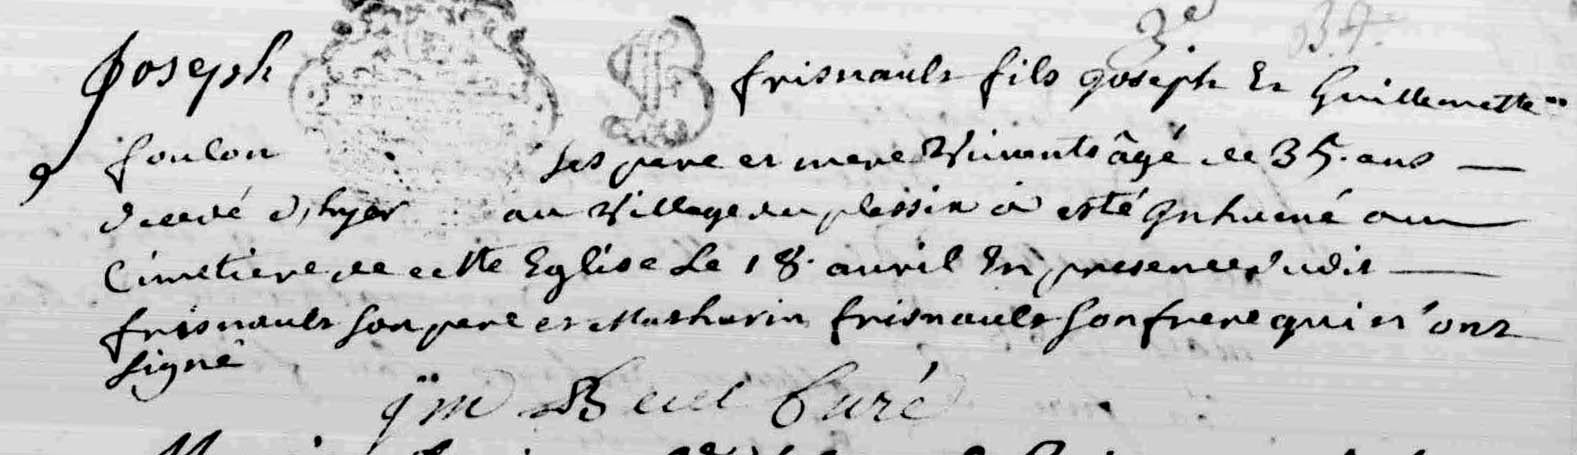 3e 37.
Joseph frisnault fils Joseph Et Guillemette
foulon ses pere et mere Vivants âgé de 35. ans
decedé d'hyer au Village du plessix a esté Inhumé au
Cimetiere de cette Eglise Le 18. avril En presence dudit
frisnault son pere et Mathurin frisnault son frere qui n'ont
signé
Curé